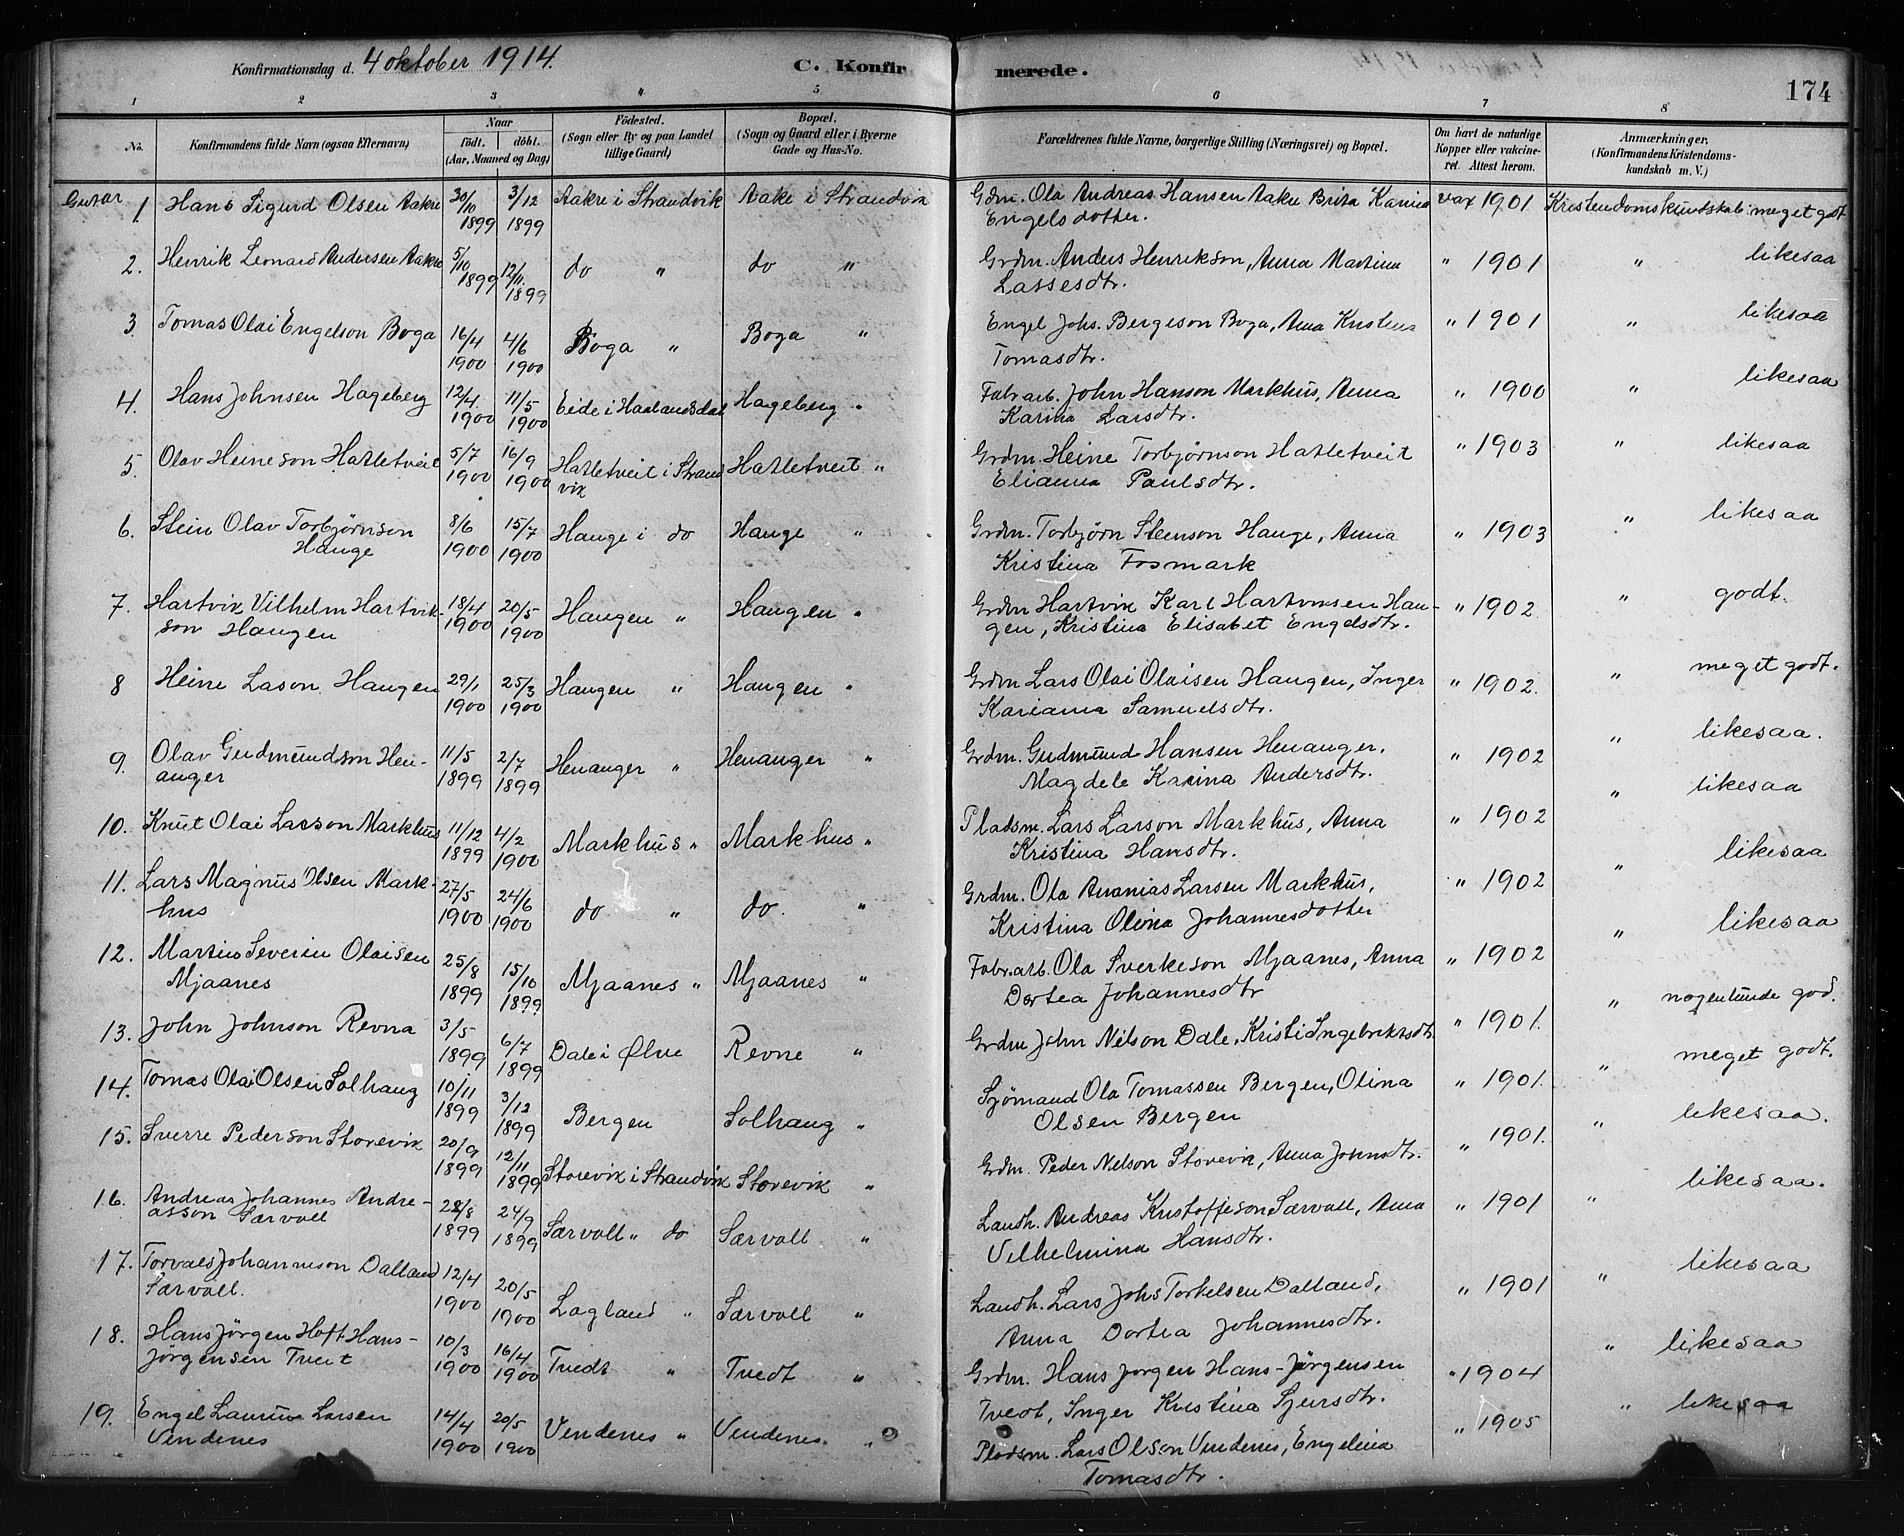 Konfirmationsdag d. 4 oktober 1914.
C. Konfir merede.
174
1 2 3 4 5 6 7 8
No.
Konfirmandens fulde Navn (ogsaa Efternavn)
Naar
født. døbt.
(Aar, Maaned og Dag)
Fødested.
(Sogn eller By og paa Landet
tillige Gaard)
Bopæl.
(Sogn og Gaard eller i Byerne
Gade og Hus-No.
Forældrenes fulde Navne, borgerlige Stilling (Næringsvei) og Bopæl.
Om havt de naturlige
Kopper eller vakcine-
ret. Attest herom.
Anmærkninger,
(Konfirmandens Kristendoms-
kundskab m. V.)
Gutar
1. Hans Sigurd Olsen Aakre 30/10 1899 3/12 1899 Aakre i Strandvik Aake i Strandvik Grdm. Ola Andreas Hansen Aakre Brita Karina vax 1901 Kristendomskundskab: meget godt
Engelsdotter.
2. Henrik Leonard Andersen Aakre 5/10 1899 12/11. 1899 do " do " Grdm. Anders Henrikson, Anna Martina " 1901 " likesaa
Lassesdtr.
3. Tomas Olai Engelson Boga 16/4 1900 4/6 1900 Boga " Boga " Engel Johs. Bergeson Boga, Anna Kristina " 1901 " likesaa
Tomasdtr.
4. Hans Johnsen Hageberg 12/4 1900 11/5 1900 Eide i Haalandsdal Hageberg " Fabr.arb. John Hanson Markhus, Anna " 1900 " likesaa
Karina Larsdtr.
5. Olav Heineson Hatletveit 5/7 1900 16/9 1900 Hatletveit i Strand Hatletveit " Grdm. Heine Torbjørnson Hatletveit " 1903 " likesaa
vik Elianna Paulsdtr.
6. Stein Olav Torbjørnson 8/6 1900 15/7 1900 Hauge i do Hauge " Grdm. Torbjørn Steenson Hauge, Anna " 1903 " likesaa
Hauge Kristina Fosmark
7. Hartvik Vilhelm Hartvik- 18/4 1900 20/5 1900 Haugen " Haugen " Grdm Hartvik Karl Hartviksen Hau- " 1902 " godt.
son Haugen gen, Kristina Elisabet Engelsdtr.
8 Heine Lason Haugen 29/1 1900 25/3 1900 Haugen " Haugen " Grdm Lars Olai Olaisen Haugen, Inger " 1902. " meget godt.
Karianna Samuelsdtr.
9. Olav Gudmundson Hen- 11/5 1899 2/7 1899 Henanger " Henanger " Grdm. Gudmund Hansen Henanger, " 1902 " likesaa.
anger Magdele Karina Andersdtr.
10. Knut Olai Larson Markhus 11/12 1899 4/2 1900 Markhus " Markhus " Pladsm. Lars Larson Markhus, Anna " 1902 " likesaa
Kristina Hansdtr.
11. Lars Magnus Olsen Mark- 27/5 1900 24/6 1900 do " do. " Grdm. Ola Ananias Larsen Markhus, " 1902 " likesaa
hus Kristina Olina Johannesdotter
12. Martin Severin Olaisen 25/8 1899 15/10 1899 Mjaanes " Mjaanes " Fabr.arb. Ola Sverkeson Mjaanes, Anna " 1902 " likesaa
Mjaanes Dortea Johannesdtr
13. John Johnson Revna 3/5 1899 6/7 1899 Dale i Ølve Revne " Grdm John Nelson Dale, Kristi Ingebriktsdtr. " 1901. " nogenlunde god.
14. Tomas Olai Olsen Solhaug 10/11 1899 3/12 1899 Bergen Solhaug " Sjømand Ola Tomassen Bergen, Olina " 1901. " meget godt.
Olsen Bergen
15. Sverre Pederson Storevik 20/9 1899 12/11 1899 Storevik i Strandvik Storevik " Grdm. Peder Nelson Storevik, Anna Johnsdtr. " 1901. " likesaa.
16. Andreas Johannes Andre- 28/8 1899 24/9 1899 Særvoll " do Særvoll " Landh. Andreas Kristoffeson Særvoll, Anna " 1901 " likesaa.
asson Særvoll Vilhelmina Hansdtr.
17. Torvald Johanneson Dalland 12/4 1900 20/5 1900 Lagland " Særvoll " Landh. Lars Johs Torkelsen Dalland, " 1901 " likesaa
Særvoll. Anna Dortea Johannesdtr.
18. Hans Jörgen Hoft Hans- 10/3 1900 16/4 1900 Tvedt " Tvedt " Grdm. Hans Jorgen Hans-Jørgensen " 1904 " likesaa
Jörgensen Tveit Tvedt, Inger Kristina Sjursdtr.
19. Engel Laurius Larsen 14/4 1900 20/5 1900 Vendenes " Vendenes. " Pladsm. Lars Olson Vendenes, Engelina " 1905 " likesaa
Vendenes Tomasdtr.